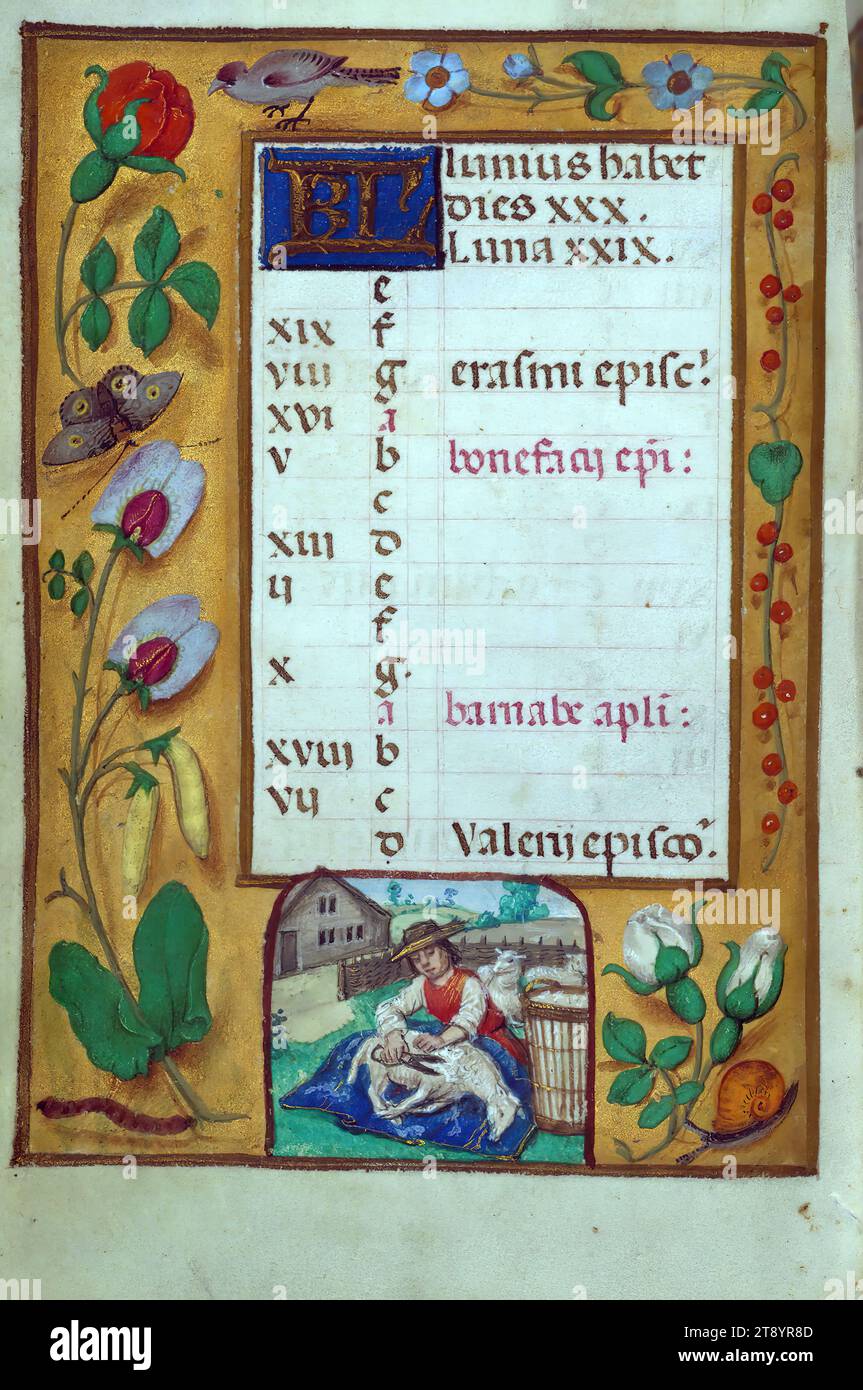 KL Iunius habet
dies xxx.
Luna xxix.
e
xix f
viii g erasmi episc'.
xvi a
v b bonefacij ep̄i:
c
xiii d
ij e
f
x g.
a barnabe apl̄i:
xviii b
vij c
d Valerij episco'.
alamy
Image ID: 2T8YR8D
www.alamy.com